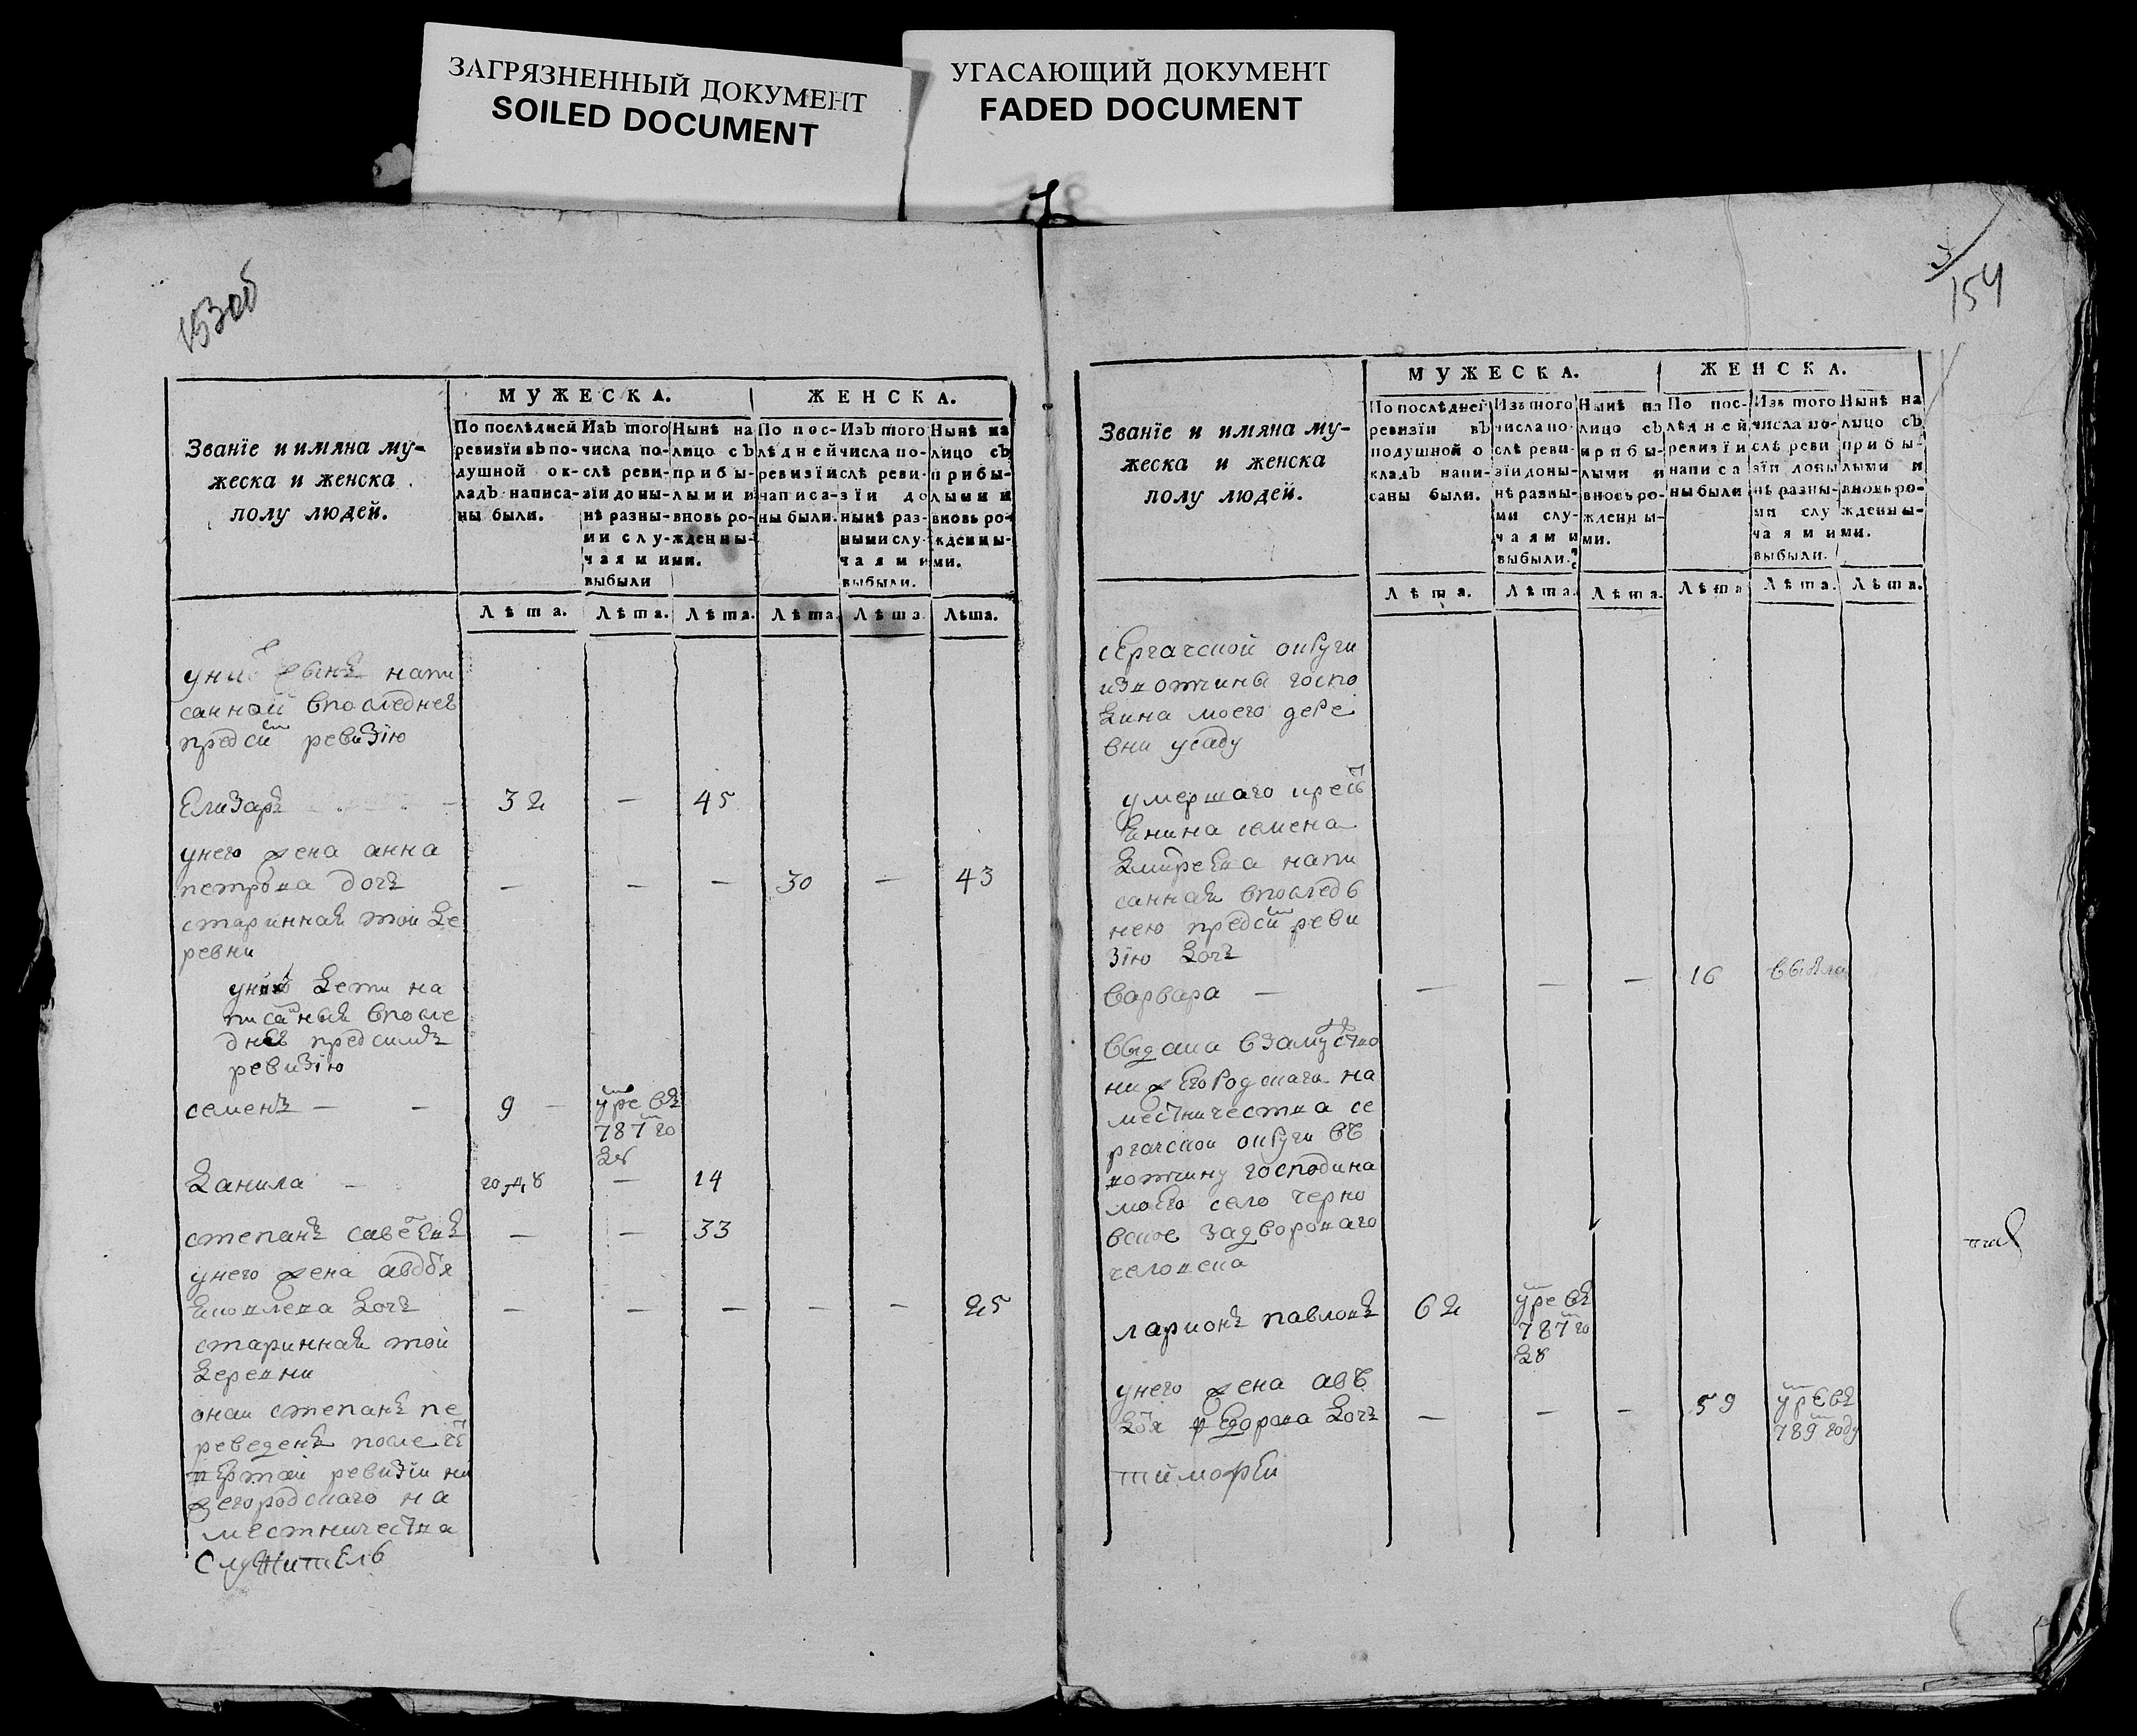 ЗАГРЯЗНЕННЫЙ ДОКУМЕНТ
SOILED DOCUMENT
УГАСАЮЩИЙ ДОКУМЕНТ
FADED DOCUMENT
153об
МУЖЕСКА.
ЖЕНСКА.
Званїе и имяна му-
жеска и женска
полу людей.
По послѣдней
ревизїи въ по-
душной ок-
ладъ написа-
ны были.
Изъ того
числа по-
слѣ реви-
зїи доны-
нѣ разны-
ми слу-
чаями
выбыли
Нынѣ на
лицо съ
прибы-
лыми и
вновь ро-
жденны-
ми.
По пос-
лѣдней
ревизїи
написа-
ны были.
Изъ того
числа по-
слѣ реви-
зїи до
нынѣ раз-
ными слу-
чаями
выбыли.
Нынѣ на
лицо съ
прибы-
лыми и
вновь ро-
жденны-
ми.
Лѣта. Лѣта. Лѣта. Лѣта. Лѣта. Лѣта.
сынъ напи
санной впоследнею
предсию ревизїю
Елизаръ 32 — 45
унего жена анна
петрова дочь — — — 30 — 43
старинная тои де
ревни
унихъ дети на
писаныя впосле
днею предсимъ
ревизїю
семенъ — — 9 — умре въ
787 го
ду
данила — году — 14
степанъ савельевъ — — 33
унего жена авдотья
яковлева дочь — — — — — 25
старинная той
деревни
онаи степанъ пе
реведенъ после че
твертой ревизїи ни
жегородскаго на
местничества
служитель
3
154
МУЖЕСКА.
ЖЕНСКА.
Званїе и имяна му-
жеска и женска
полу людей.
По послѣдней
ревизїи въ
подушной о
кладъ напи-
саны были.
Изъ того
числа по-
слѣ реви-
зїи доны-
нѣ разны-
ми слу-
чаями
выбыли.
Нынѣ на
лицо съ
прибы-
лыми и
вновь ро-
жденны-
ми.
По пос-
лѣдней
ревизїи
написа
ны были
Изъ того
числа по-
слѣ реви
зїи доны
нѣ разны-
ми слу
чаями
выбыли.
Нынѣ на
лицо съ
прибы-
лыми и
вновь ро-
жденны-
ми.
Лѣта. Лѣта. Лѣта. Лѣта Лѣта. Лѣта.
сергачской округи
извотчины госпо
дина моего дере
вни усаду
умершаго кресть
енина семена
дмитреева напи
санная впоследь
нею предсию реви
зїю дочь
варвара — — — — 16 выбыла
выдана взамуство
нижегородскага на
местничества се
ргачскои округи въ
вотчину господина
моего село черно
вское задворонаго
человека
ларионъ павловъ 62 умре въ
787 го
ду
унего жена авъ
дотья федорова дочь — — — 59 умре въ
789 году
тимофеи